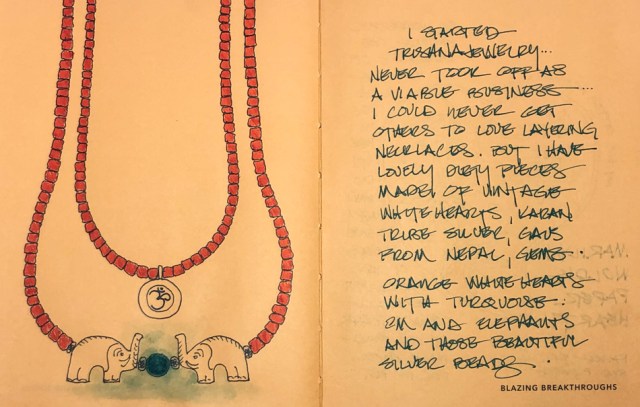 ॐ
I STARTED
TRISHNAJEWELRY...
NEVER TOOK OFF AS
A VIABLE BUSINESS ...
I COULD NEVER GET
OTHERS TO LOVE LAYERING
NECKLACES. BUT I HAVE
LOVELY PIECES
MADE OF VINTAGE
WHITE HEARTS, KAREN
TRIBE SILVER, GAUS
FROM NEPAL, GEMS.
ORANGE WHITE HEARTS
WITH TURQUOISE.
OM AND ELEPHANTS
AND THESE BEAUTIFUL
SILVER BEADS.
BLAZING BREAKTHROUGHS